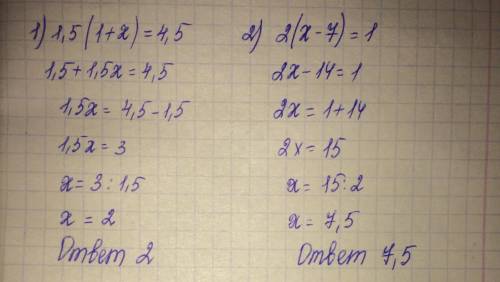 1) 1,5(1+x)=4,5
1,5+1,5x=4,5
1,5x=4,5-1,5
1,5x=3
x=3:1,5
x=2
Ответ 2
2) 2(x-7)=1
2x-14=1
2x=1+14
2x=15
x=15:2
x=7,5
Ответ 7,5